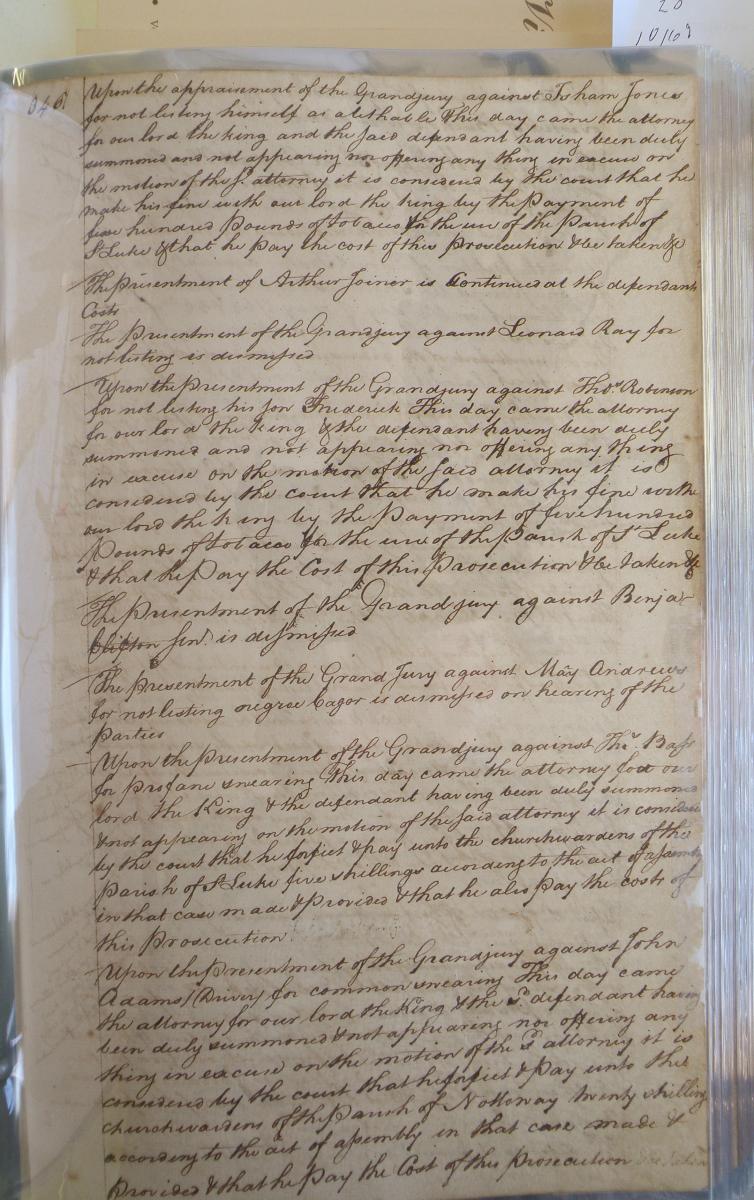 20
10/69
Vi
Upon the appraisement of the Grandjury against Isham Jones
for not listing himself as a tithable This day came the attorney
for our lord the king and the said defendant having been duly
summoned and not appearing nor offering any thing in excuse on
the motion of the sd. attorney it is considered by the court that he
make his fine with our lord the king by the Payment of
five hundred Pounds of tobacco for the use of the Parish of
St Luke & that he pay the cost of this prosecution & be taken &c
The presentment of Arthur Joiner is Continued at the defendants
Costs
The Presentment of the Grandjury against Leonard Ray for
not listing is dismissed
Upon the presentment of the Grandjury against Thos. Robinson
for not listing his son Frederick This day came the attorney
for our lord the King & the defendant having been duly
summoned and not appearing nor offering any thing
in excuse on the motion of the said attorney it is
considered by the court that he make his fine with
our lord the King by the Payment of five hundred
Pounds of tobacco for the use of the Parish of St Luke
& that he pay the Cost of this Prosecution & be taken &c
The presentment of the Grandjury against Benja.
Clifton senr. is dismissed
The presentment of the Grand Jury against May Andrews
for not listing negroe Cagor is dismissed on hearing of the
Parties
Upon the Presentment of the Grandjury against Thos. Bass
for profane swearing This day came the attorney for our
lord the King & the defendant having been duly summoned
& not appearing on the motion of the said attorney it is considered
by the court that he forfiet & pay unto the churchwardens of the
parish of St Luke five shillings according to the act of assembly
in that case made & Provided & that he also pay the costs of
this Prosecution
Upon the Presentment of the Grandjury against John
Adams (River) for common swearing This day came
the attorney for our lord the King & the sd. defendant having
been duly summoned & not appearing nor offering any
thing in excuse on the motion of the sd. attorney it is
considered by the court that he forfiet & Pay unto the
churchwardens of the Parish of Nottoway twenty shilling
according to the act of assembly in that case made &
Provided & that he Pay the Cost of this Prosecution